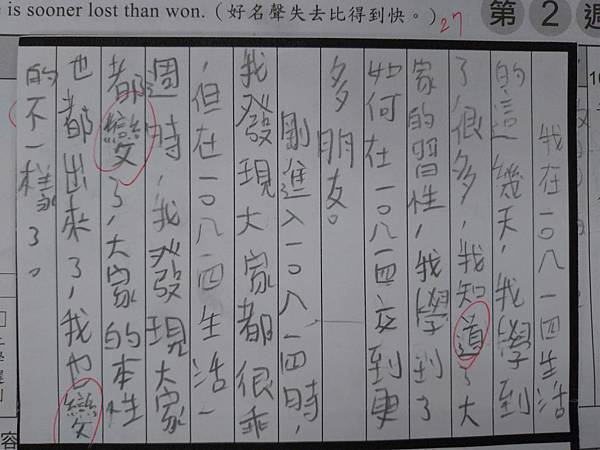 e is sooner lost than won.(好名聲失去比得到快。)
27
第2週
我在一〇八一四生活
的這幾天,我學到
了很多,我知道了大
家的習性,我學到了
如何在一〇八一四交到更
多朋友。
剛進入一〇八一四時,
我發現大家都很乖
,但在一〇八一四生活一
週時,我發現大家
都變了,大家的本性
也都出來了,我也變
的不一樣了。
容